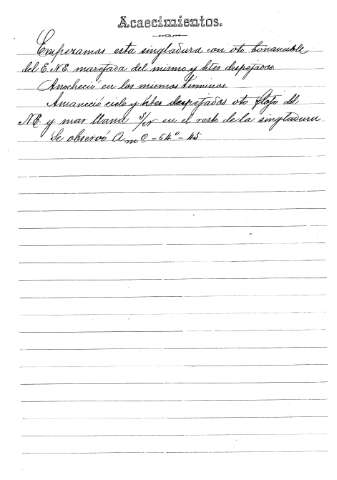 Acaecimientos.
Empezamos esta singladura con vto bonancible
del E.N.E. marejada del mismo y htes despejados
Anocheció en los mismos términos
Amaneció cielo y htes despejados vto flojo del
NE y mar llana s/r en el resto de la singladura
Se observó A m C = 54° - 45